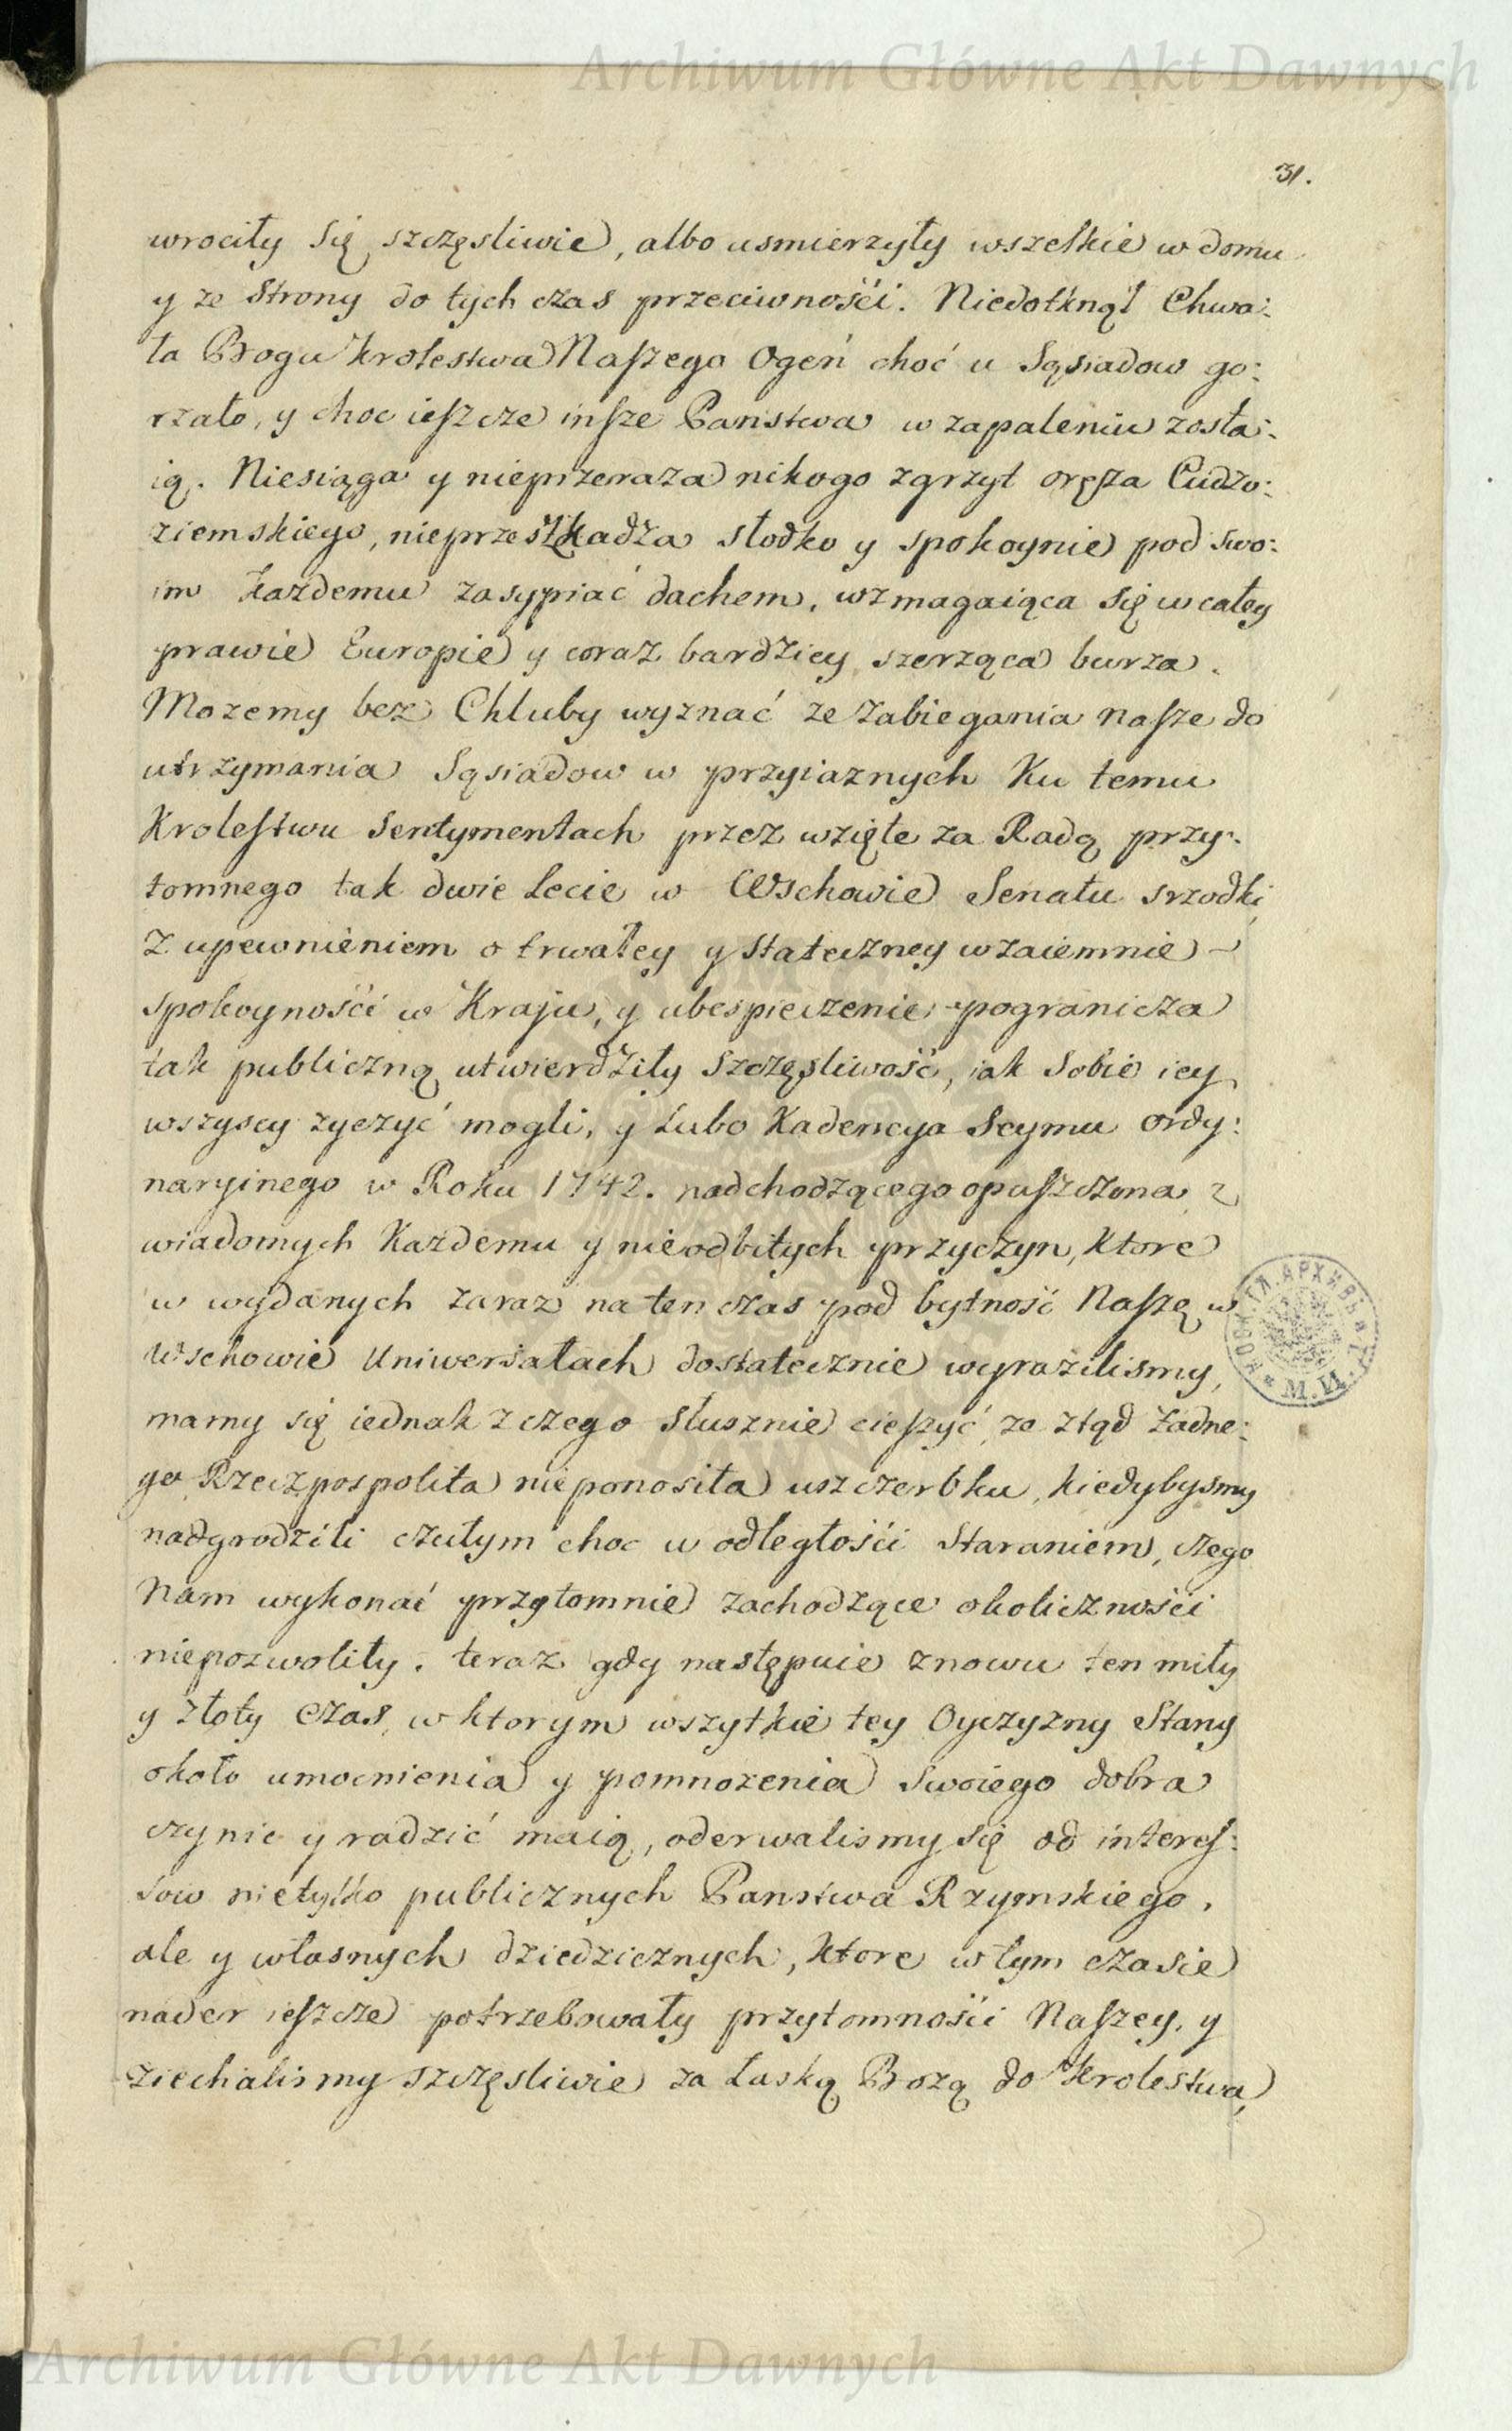 Archiwum Główne Akt Dawnych
31.
wrociły się szczęsliwie, albo usmierzyły wszelkie w domu
y ze strony do tych czas przeciwnośći. Niedotknął Chwa:
ła Bogu krolestwa Naſzego Ogeń choć u Sąsiadow go:
rzało, y choc ieſzcze inſze Panstwa w zapaleniu zosta:
ią. Niesiąga y nieprzeraza nikogo zgrzyt oręża Cudzo:
ziemskiego, nieprzeszkadza słodko y spokoynie pod swo:
im kazdemu zasypiać dachem, wzmagaiąca się w całey
prawie Europie y coraz bardziey szerząca burza.
Mozemy bez Chluby wyznać ze zabiegania naſze do
utrzymania Sąsiadow w przyiaznych Ku temu
Kroleſtwu Sentymentach przez wzięte za Radą przy:
tomnego tak dwie lecie w Wschowie Senatu srzodki,
z upewnieniem o trwałey y stateczney wzaiemnie –
spokoynośći w Kraju, y ubespieczenie pogranicza
tak publiczną utwierdziły szczęsliwość, iak sobie iey
wszyscy zyczyć mogli, y Lubo Kadencya Seymu ordy:
naryinego w Roku 1742. nadchodzącego opuſzczona z
wiadomych Kazdemu y nieodbitych przyczyn, ktore
w wydanych zaraz na ten czas pod bytność Naſzę w
Wschowie Uniwersałach dostatecznie wyrazilismy,
mamy się iednak z czego słusznie cieſzyć, ze ztąd zadne:
go Rzeczpospolita nieponosiła uszczerbku, kiedybysmy
nadgrodzili czułym choc w odległośći staraniem, czego
Nam wykonać przytomnie zachodzące okolicznośći
niepozwoliły. teraz gdy następuie znowu ten miły
y złoty czas, w ktorym wszytkie tey Oyczyzny Stany
około umocnienia y pomnozenia swoiego dobra
czynic y radzić maią, oderwalismy się od intereſ:
sow nietylko publicznych Panstwa Rzymskiego,
ale y własnych dziedzicznych, ktore w tym czasie
nader ieſzcze potrzebowały przytomnośći Naſzey, y
ziechalismy szczęsliwie za Łaską Bozą do Krolestwa,
Archiwum Główne Akt Dawnych